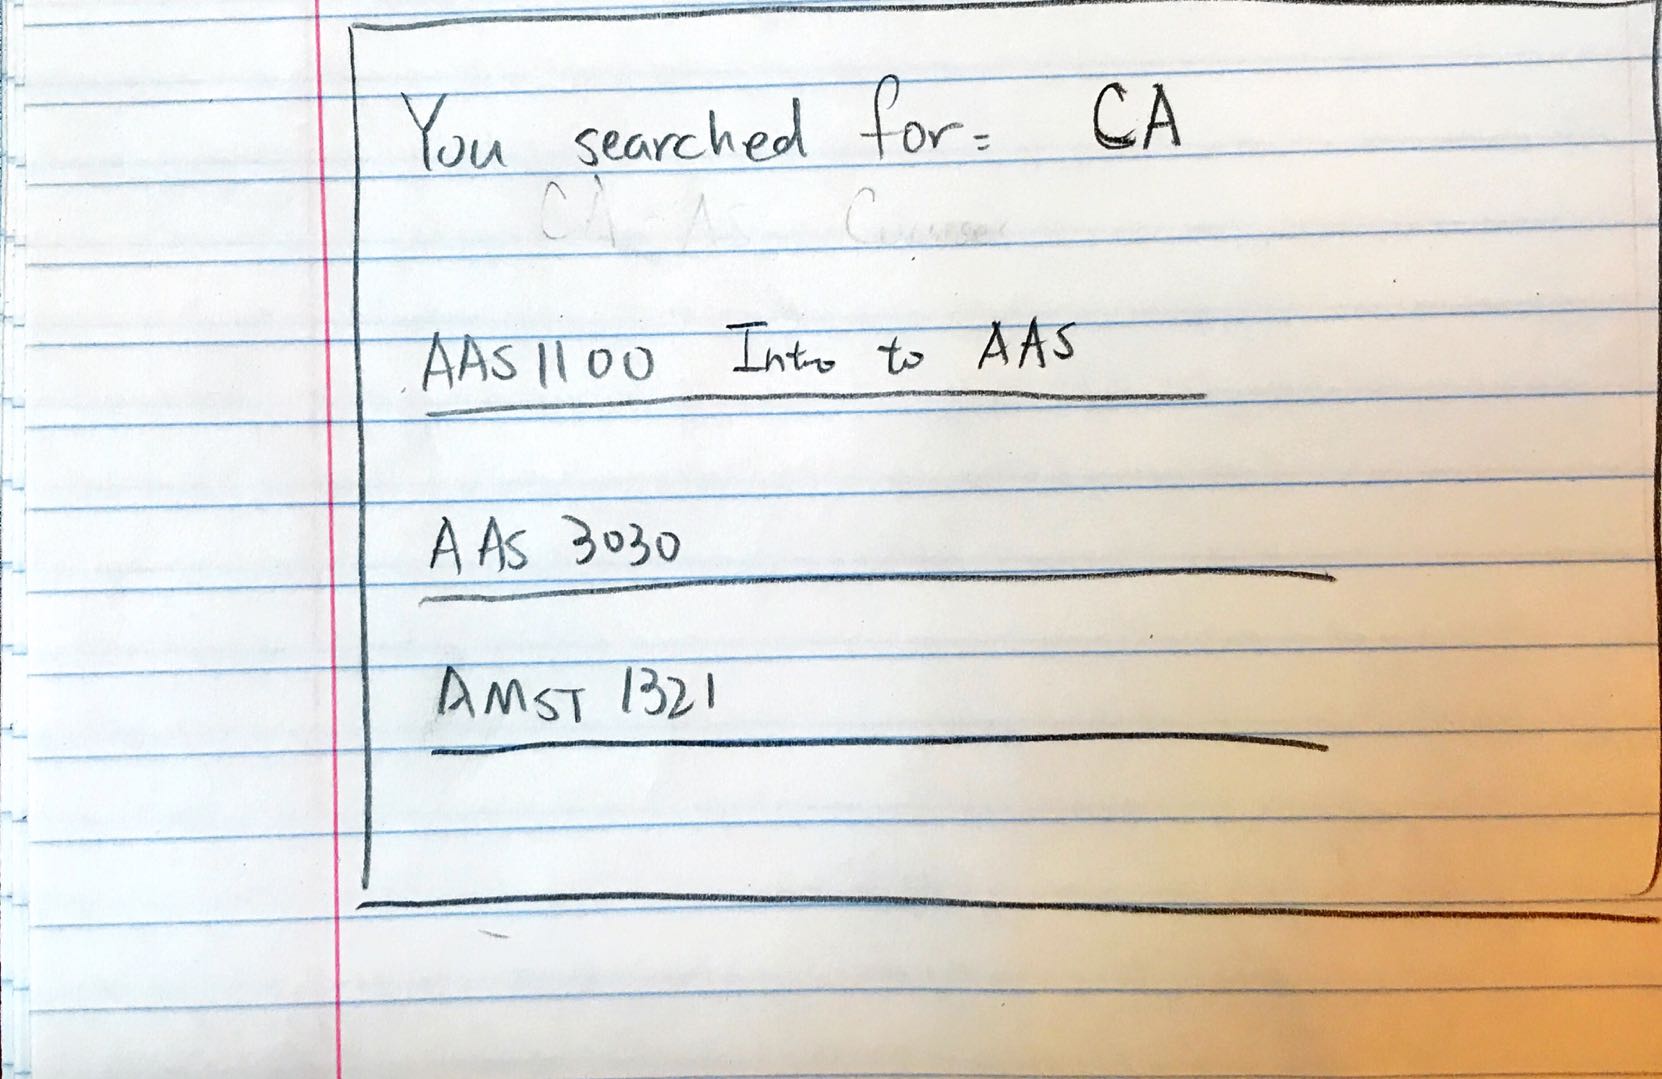 You searched for: CA
CA-AS Courses
AAS 1100 Intro to AAS
AAS 3030
AMST 1321